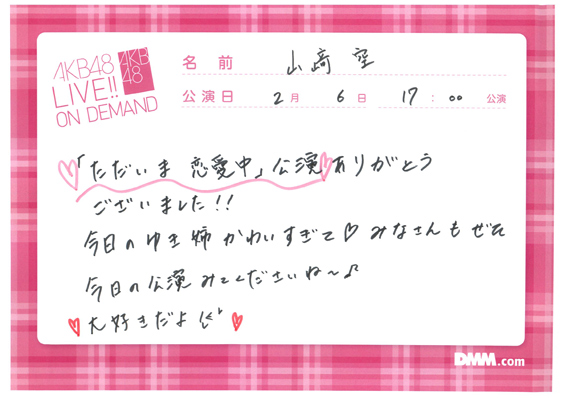 AKB48
LIVE!!
ON DEMAND
AKB
48
名前 山﨑 空
公演日 2月 6日 17:00 公演
「ただいま 恋愛中」公演ありがとう
ございました!!
今日のゆき姉かわいすぎて♡みなさんもぜひ
今日の公演みてくださいね〜♪
大好きだよ
DMM.com